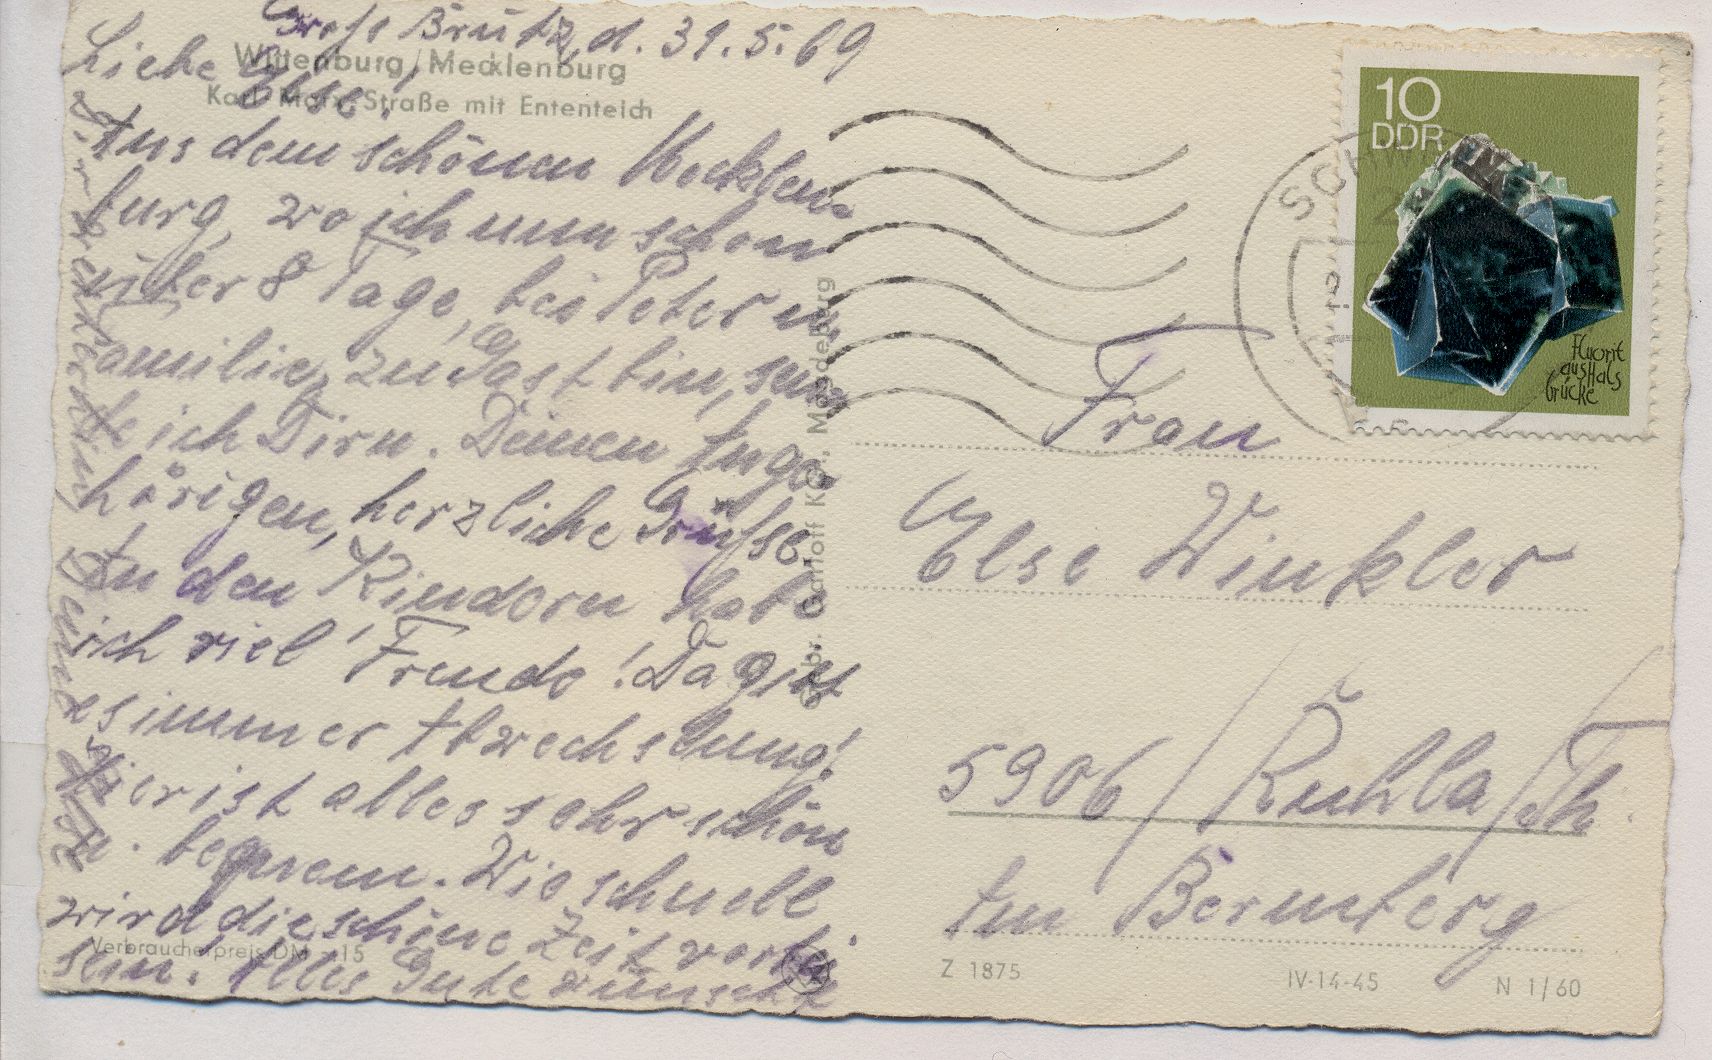 Groß Brütz, d. 31.5.69
Wittenburg / Mecklenburg
Karl-Marx-Straße mit Ententeich
Liebe Else!
Aus dem schönen Mecklen-
burg, wo ich nun schon
über 8 Tage, bei Peter u.
Familie, zu Gast bin, sen-
de ich Dir u. Deinen Ange-
hörigen, herzliche Grüße
An den Kindern habe
ich viel Freude! Da gibt
s immer Abwechslung!
Hier ist alles sehr schön
u. bequem. Wie schnell
wird die schöne Zeit vorbei
sein. Alles Gute wünscht
Dir
Deine
Gebr. Garloff KG., Magdeburg
Verbraucherpreis DM 15
10
DDR
Fluorit
aus Hals
brücke
SCHWERIN
Frau
Else Winkler
5906 / Ruhla / Th.
Am Bermberg
Z 1875
IV-14-45
N 1/60